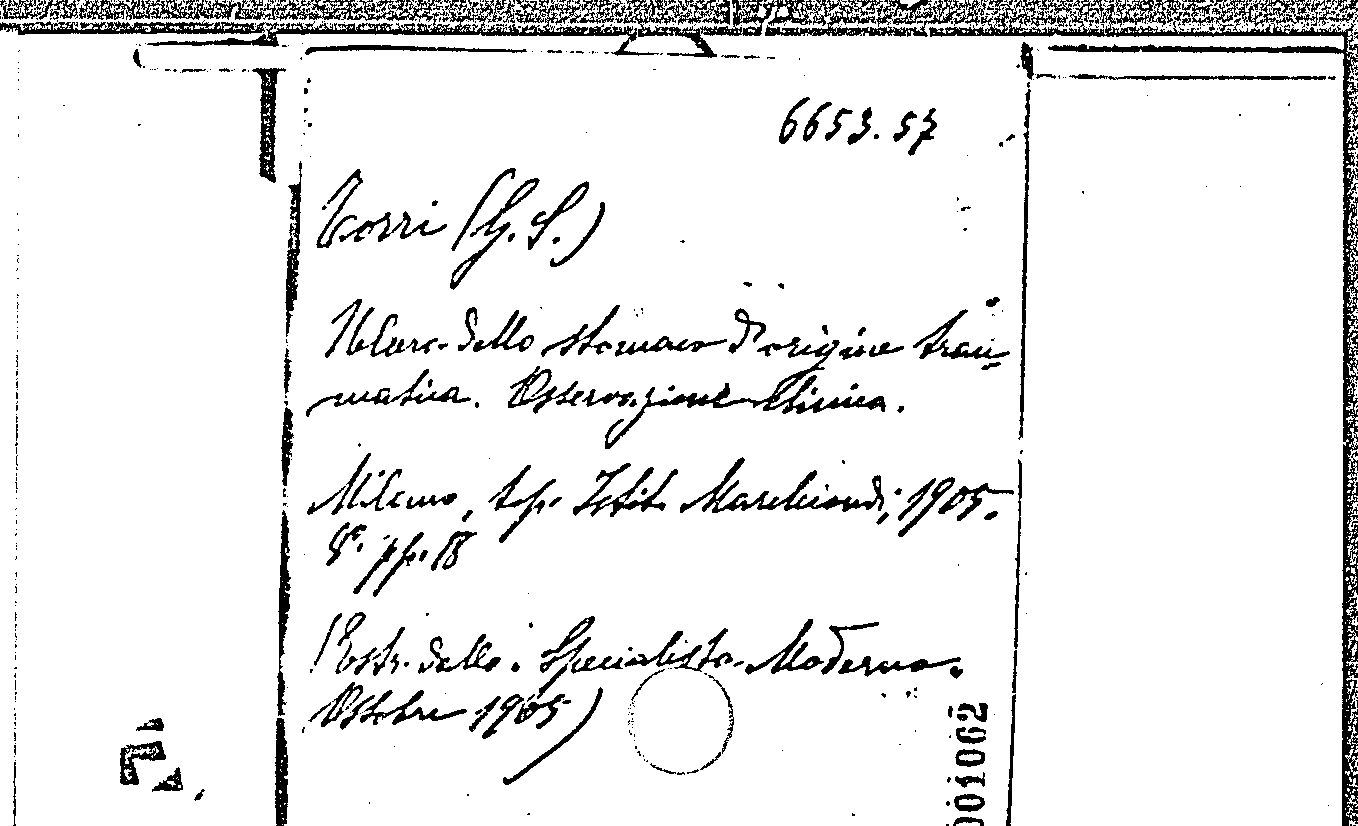 6653.57
Torri (G. S.)
Ulcera dello stomaco d'origine trau-
matica. Osservazione clinica.
Milano, tip. Istit. Marchiondi, 1905.
8º. pp. 18
(Estr. dallo: Specialista Moderno.
Ottobre 1905)
001062